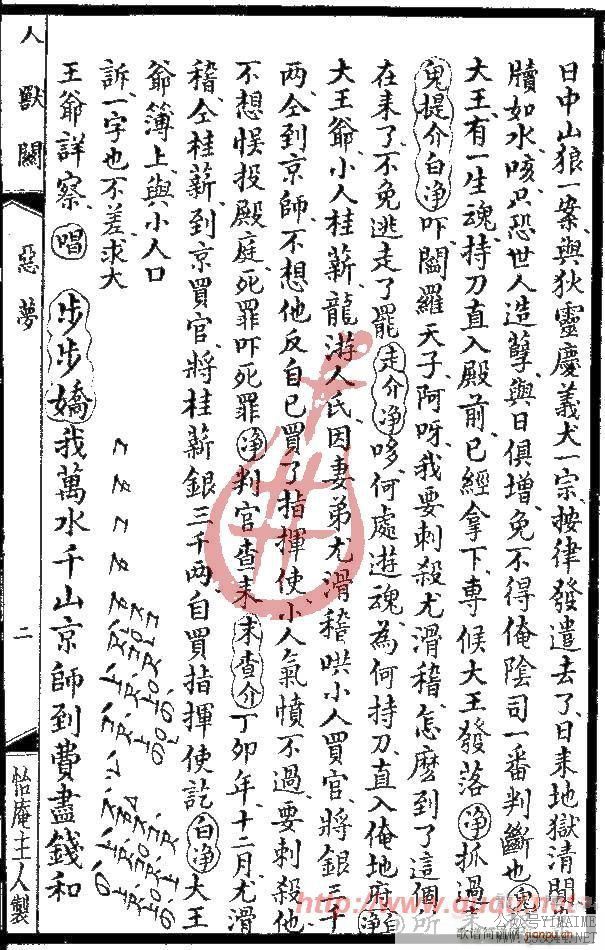 日中山狼一案、與狄靈慶義犬一宗、按律發遣去了、日來地獄清閒
牘如水、咳只恐世人造孽、與日俱增、免不得俺陰司一番判斷也、鬼
大王、有一生魂、持刀直入殿前、已經拿下、專候大王發落、净抓過
鬼提介白净吓、閻羅天子、阿呀、我要刺殺尤滑稽、怎麽到了這個
在來了、不免逃走了罷、走介净哆、何處遊魂、為何持刀、直入俺地府、白净
大王爺、小人桂薪、龍游人氏、因妻弟尤滑稽、哄小人買官、將銀三千
两、仝到京師、不想他反自己買了指揮使、小人氣憤不過、要刺殺他
不想悞投殿庭、死罪吓死罪、净判官查來、末查介丁卯年、十二月、尤滑
稽、仝桂薪、到京買官、將桂薪銀三千两、自買指揮使訖、白净大王
爺簿上、與小人口
訴、一字也不差、求大
王爺詳察、唱步步嬌我萬水千山京師到費盡錢和
人獸關
惡夢
二
怡庵主人製
http://www.ququ.net